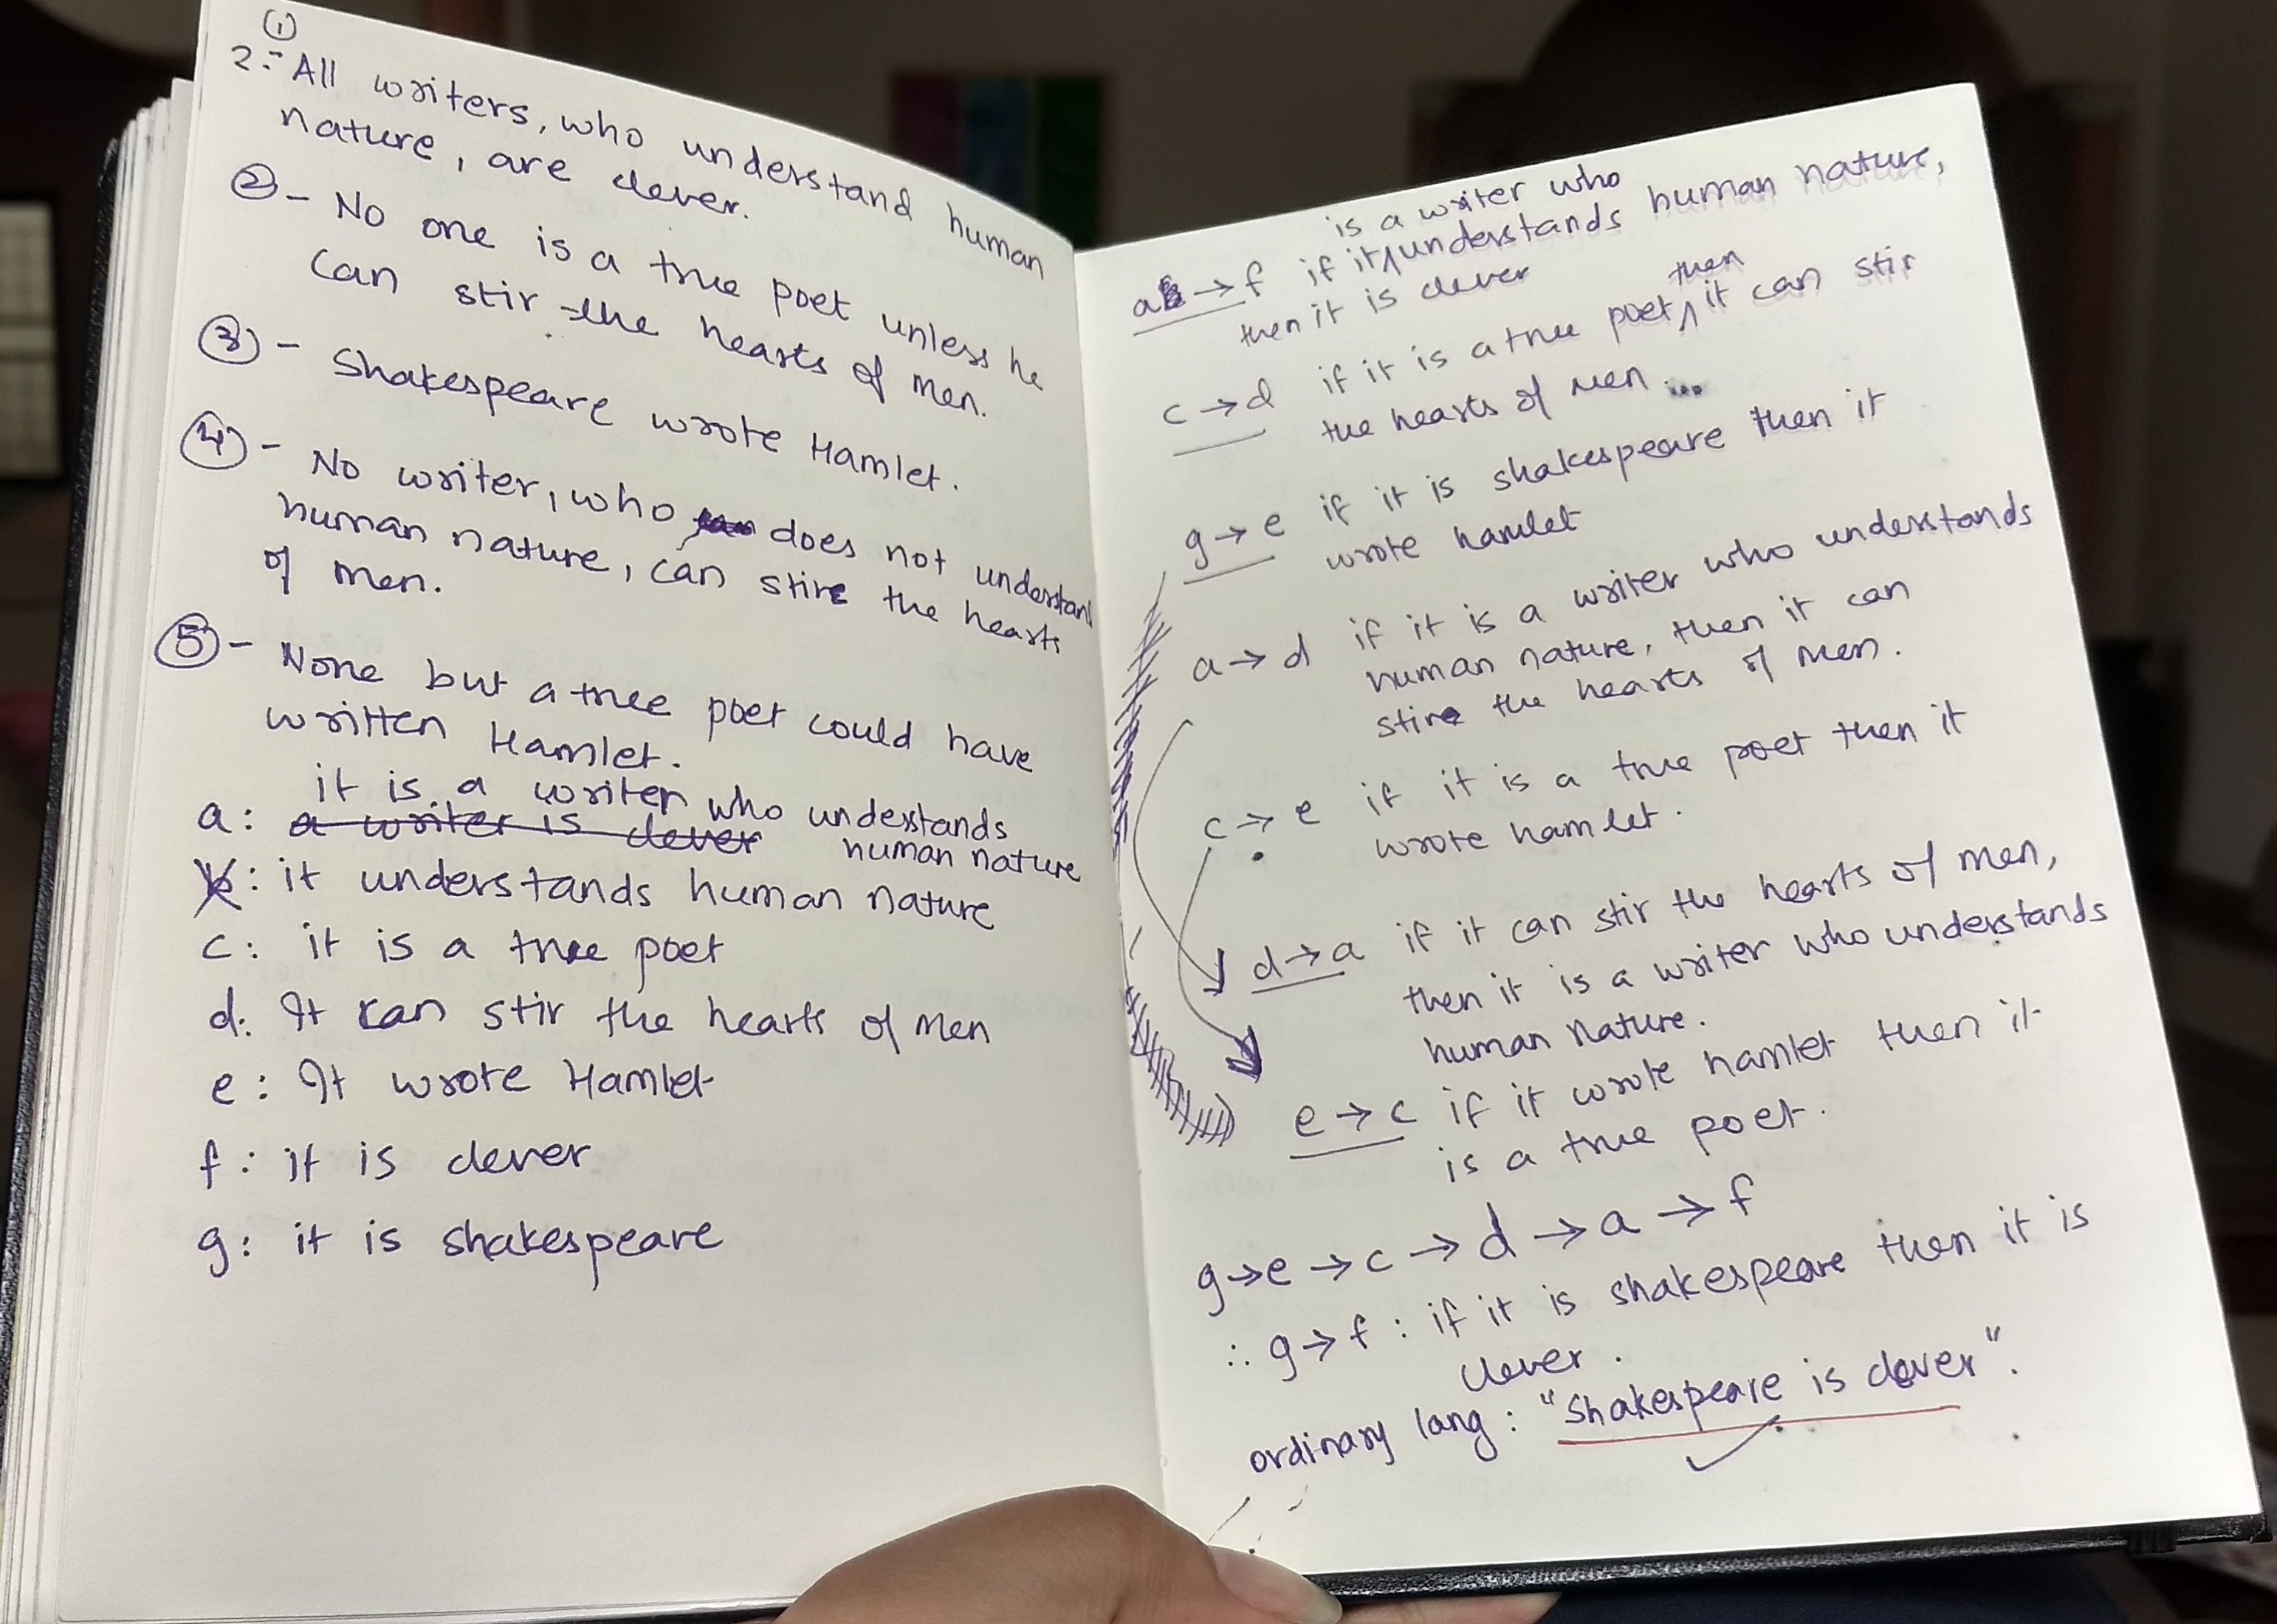 ①
2:- All writers, who understand human
nature, are clever.
② - No one is a true poet unless he
can stir the hearts of men.
③ - Shakespeare wrote Hamlet.
④ - No writer, who does not understand
human nature, can stire the hearts
of men.
⑤ - None but a true poet could have
written Hamlet.
it is a writer who understands
a: a writer is clever human nature
b: it understands human nature
c: it is a true poet
d: It can stir the hearts of men
e: It wrote Hamlet
f: it is clever
g: it is shakespeare
is a writer who
a → f if it understands human nature,
then it is clever
then
c → d if it is a true poet, it can stir
the hearts of men
g → e if it is shakespeare then it
wrote hamlet
a → d if it is a writer who understands
human nature, then it can
stire the hearts of men.
c → e if it is a true poet then it
wrote hamlet.
d → a if it can stir the hearts of men,
then it is a writer who understands
human nature.
e → c if it wrote hamlet then it
is a true poet.
g → e → c → d → a → f
∴ g → f : if it is shakespeare then it is
clever.
ordinary lang: "Shakespeare is clever".